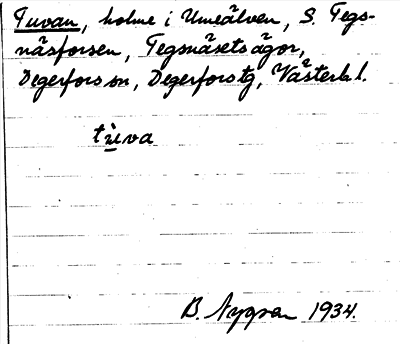 Tuvan, holme i Umeälven, S. Tegs-
näsforsen, Tegsnäsets ägor,
Degerfors sn, Degerfors tg, Västerb. l.
tùva
B. Nygren 1934.